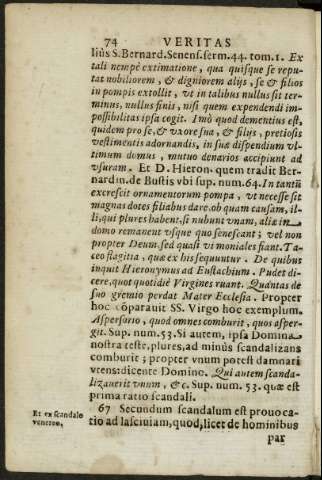 74 VERITAS
liùs S. Bernard. Senens. serm. 44. tom. 1. Ex
tali nempè extimatione, qua quisque se repu
tat nobiliorem, & digniorem alijs, se & filios
in pompis extollit, vt in talibus nullus sit ter-
minus, nullus finis, nisi quem expendendi im-
possibilitas ipsa cogit. Imò quod dementius est,
quidem pro se, & vxore sua, & filijs, pretiosis
vestimentis adornandis, in suæ dispendium vl-
timum domus, mutuo denarios accipiunt ad
vsuram. Et D. Hieron. quem tradit Ber-
nardin. de Bustis vbi sup. num. 64. In tantũ
excrescit ornamentorum pompa, vt necesse sit
magnas dotes filiabus dare. ob quam causam, il-
li, qui plures habent, si nubunt vnam, aliæ in
domo remanent vsque quo senescant; vel non
propter Deum sed quasi vi moniales fiant. Ta-
ceo flagitia, quæ ex his sequuntur. De quibus
inquit Hieronymus ad Eustachium. Pudet di-
cere, quot quotidiè Virgines ruant. Quantas de
suo gremio perdat Mater Ecclesia. Propter
hoc cõparauit SS. Virgo hoc exemplum.
Aspersorio, quod omnes comburit, quos asper-
git. Sup. num. 53. Si autem, ipsa Domina
nostra teste, plures, ad minùs scandalizans
comburit; propter vnum potest damnari
vtens: dicente Domino. Qui autem scanda-
lizauerit vnum, & c. Sup. num. 53. quæ est
prima ratio scandali.
Et ex scandalo
venereo.
67 Secundum scandalum est prouoca-
tio ad lasciuiam, quod, licet de hominibus
par